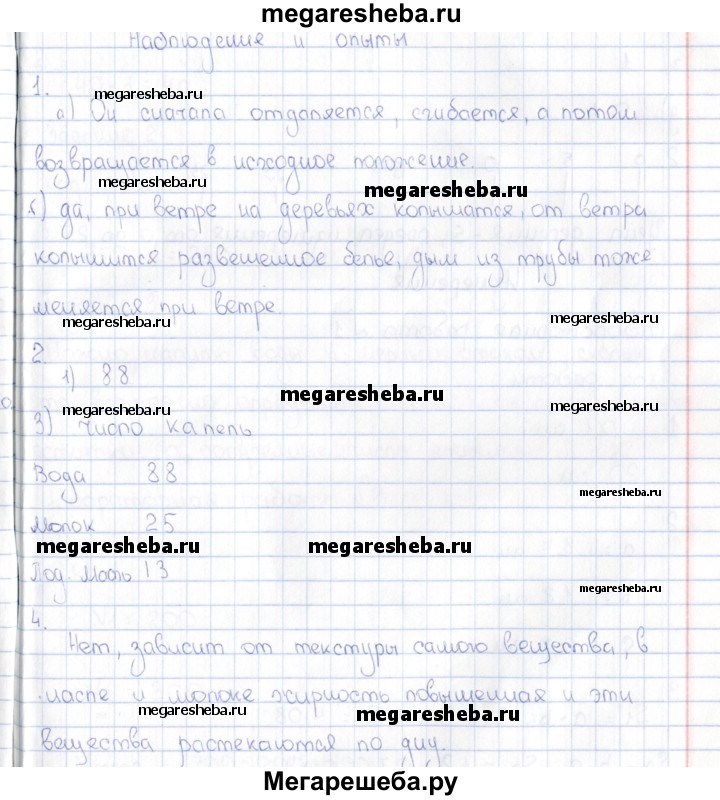 megaresheba.ru
Наблюдение и опыты
1.
megaresheba.ru
а) Он сначала отдаляется, сгибается, а потом
возвращается в исходное положение.
megaresheba.ru
megaresheba.ru
б) да, при ветре на деревьях копышатся, от ветра
копышится развешенное белье, дым из трубы тоже
меняется при ветре.
megaresheba.ru
megaresheba.ru
2.
1) 88
megaresheba.ru
megaresheba.ru
megaresheba.ru
3) Число капель
Вода 88
megaresheba.ru
Молок 25
megaresheba.ru
megaresheba.ru
Под. Масло 13
megaresheba.ru
4.
Нет, зависит от текстуры самого вещества, в
масле и молоке жирность повышенная и эти
megaresheba.ru
megaresheba.ru
вещества растекаются по дну.
Мегарешеба.ру